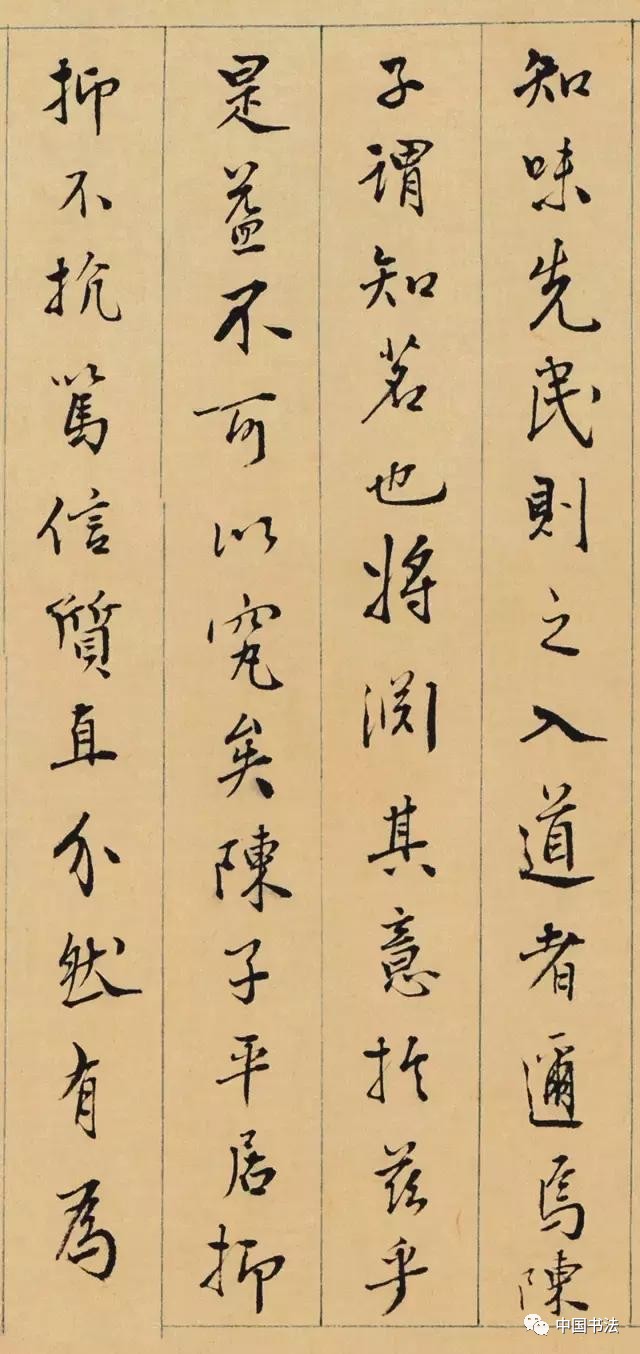 知味先民則之入道者邇焉陳
子謂知茗也將淵其意於茲乎
是蓋不可以究矣陳子平居抑
抑不抗篤信質直介然有為
中国书法